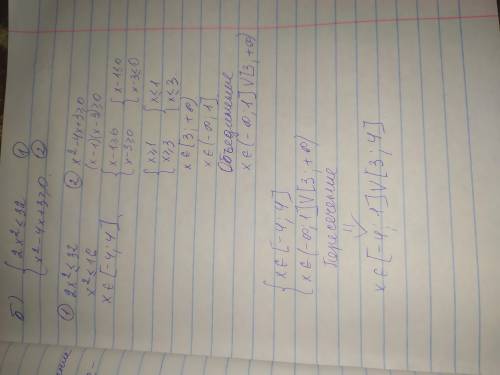 б) { 2x² ≤ 32 ①
{ x² - 4x + 3 ≥ 0 ②
① 2x² ≤ 32
x² ≤ 16
x ∈ [-4; 4]
② x² - 4x + 3 ≥ 0
(x-1)(x-3) ≥ 0
{ x-1 ≥ 0 { x-1 ≤ 0
{ x-3 ≥ 0 { x-3 ≤ 0
{ x ≥ 1 { x ≤ 1
{ x ≥ 3 { x ≤ 3
x ∈ [3; +∞)
x ∈ (-∞; 1]
Объединение
x ∈ (-∞; 1] V [3; +∞)
{ x ∈ [-4; 4]
{ x ∈ (-∞; 1] V [3; +∞)
Пересечение
x ∈ [-4; 1] V [3; 4]